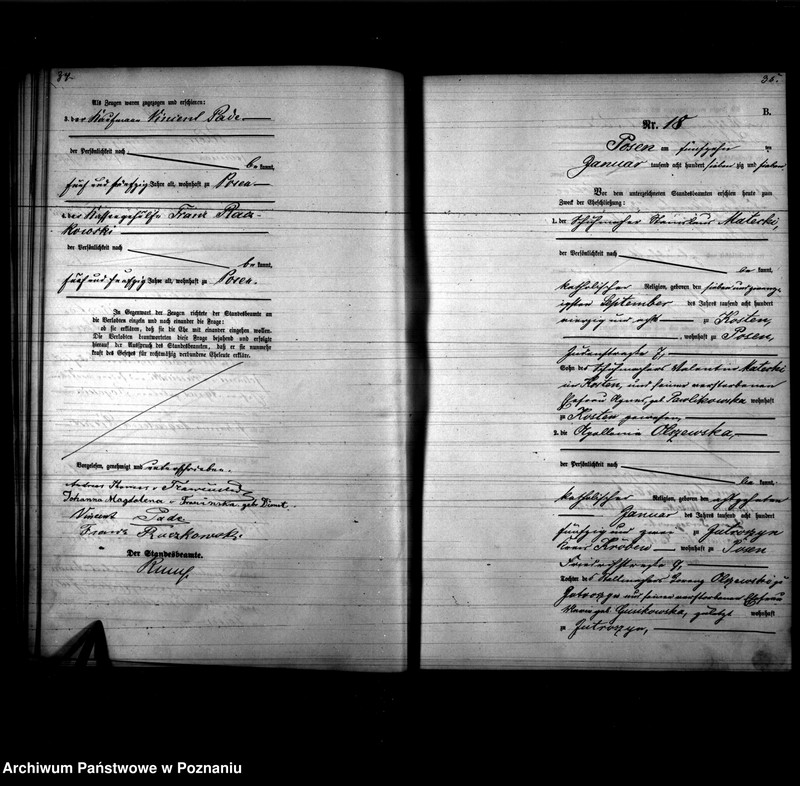 34.
Als Zeugen waren zugezogen und erschienen:
3. der Kaufmann Vincent Pade
der Persönlichkeit nach
bekannt,
fünf und fünfzig Jahre alt, wohnhaft zu Posen
4. der Kassengehülfe Franz Racz-
kowski
der Persönlichkeit nach
bekannt,
fünf und fünfzig Jahre alt, wohnhaft zu Posen.
In Gegenwart der Zeugen richtete der Standesbeamte an
die Verlobten einzeln und nach einander die Frage:
ob sie erklären, daß sie die Ehe mit einander eingehen wollen.
Die Verlobten beantworteten diese Frage bejahend und erfolgte
hierauf der Ausspruch des Standesbeamten, daß er sie nunmehr
kraft des Gesetzes für rechtmäßig verbundene Eheleute erkläre.
Vorgelesen, genehmigt und unterschrieben.
Johanna Magdalena geb.
Vincent Pade
Franz Raczkowski
Der Standesbeamte.
35.
B.
Nr. 18
Posen am fünfzehnten
Januar tausend acht hundert siebenzig und sieben
Vor dem unterzeichneten Standesbeamten erschien heute zum
Zweck der Eheschließung:
1. der Schuhmacher Stanislaus Materski,
der Persönlichkeit nach
bekannt,
katholischer Religion, geboren den sieben und zwan-
zigsten September des Jahres tausend acht hundert
vierzig und acht zu Kosten,
wohnhaft zu Posen,
Judenstraße 7,
Sohn des Schuhmachers Valentin Materski
in Kosten, und seiner verstorbenen
Ehefrau Agnes, geb. Pawlikowska wohnhaft
zu Kosten gewesen,
2. die Apollonia Olszewska,
der Persönlichkeit nach
bekannt,
katholischer Religion, geboren den achtzehnten
Januar des Jahres tausend acht hundert
fünfzig und zwei zu Jutroszyn
Kreis Kröben wohnhaft zu Posen
Friedrichstraße
Tochter des Stellmachers Lorenz Olszewski zu
Jutroszyn und seiner verstorbenen Ehefrau
geb. zuletzt wohnhaft
zu Jutroszyn,
Archiwum Państwowe w Poznaniu